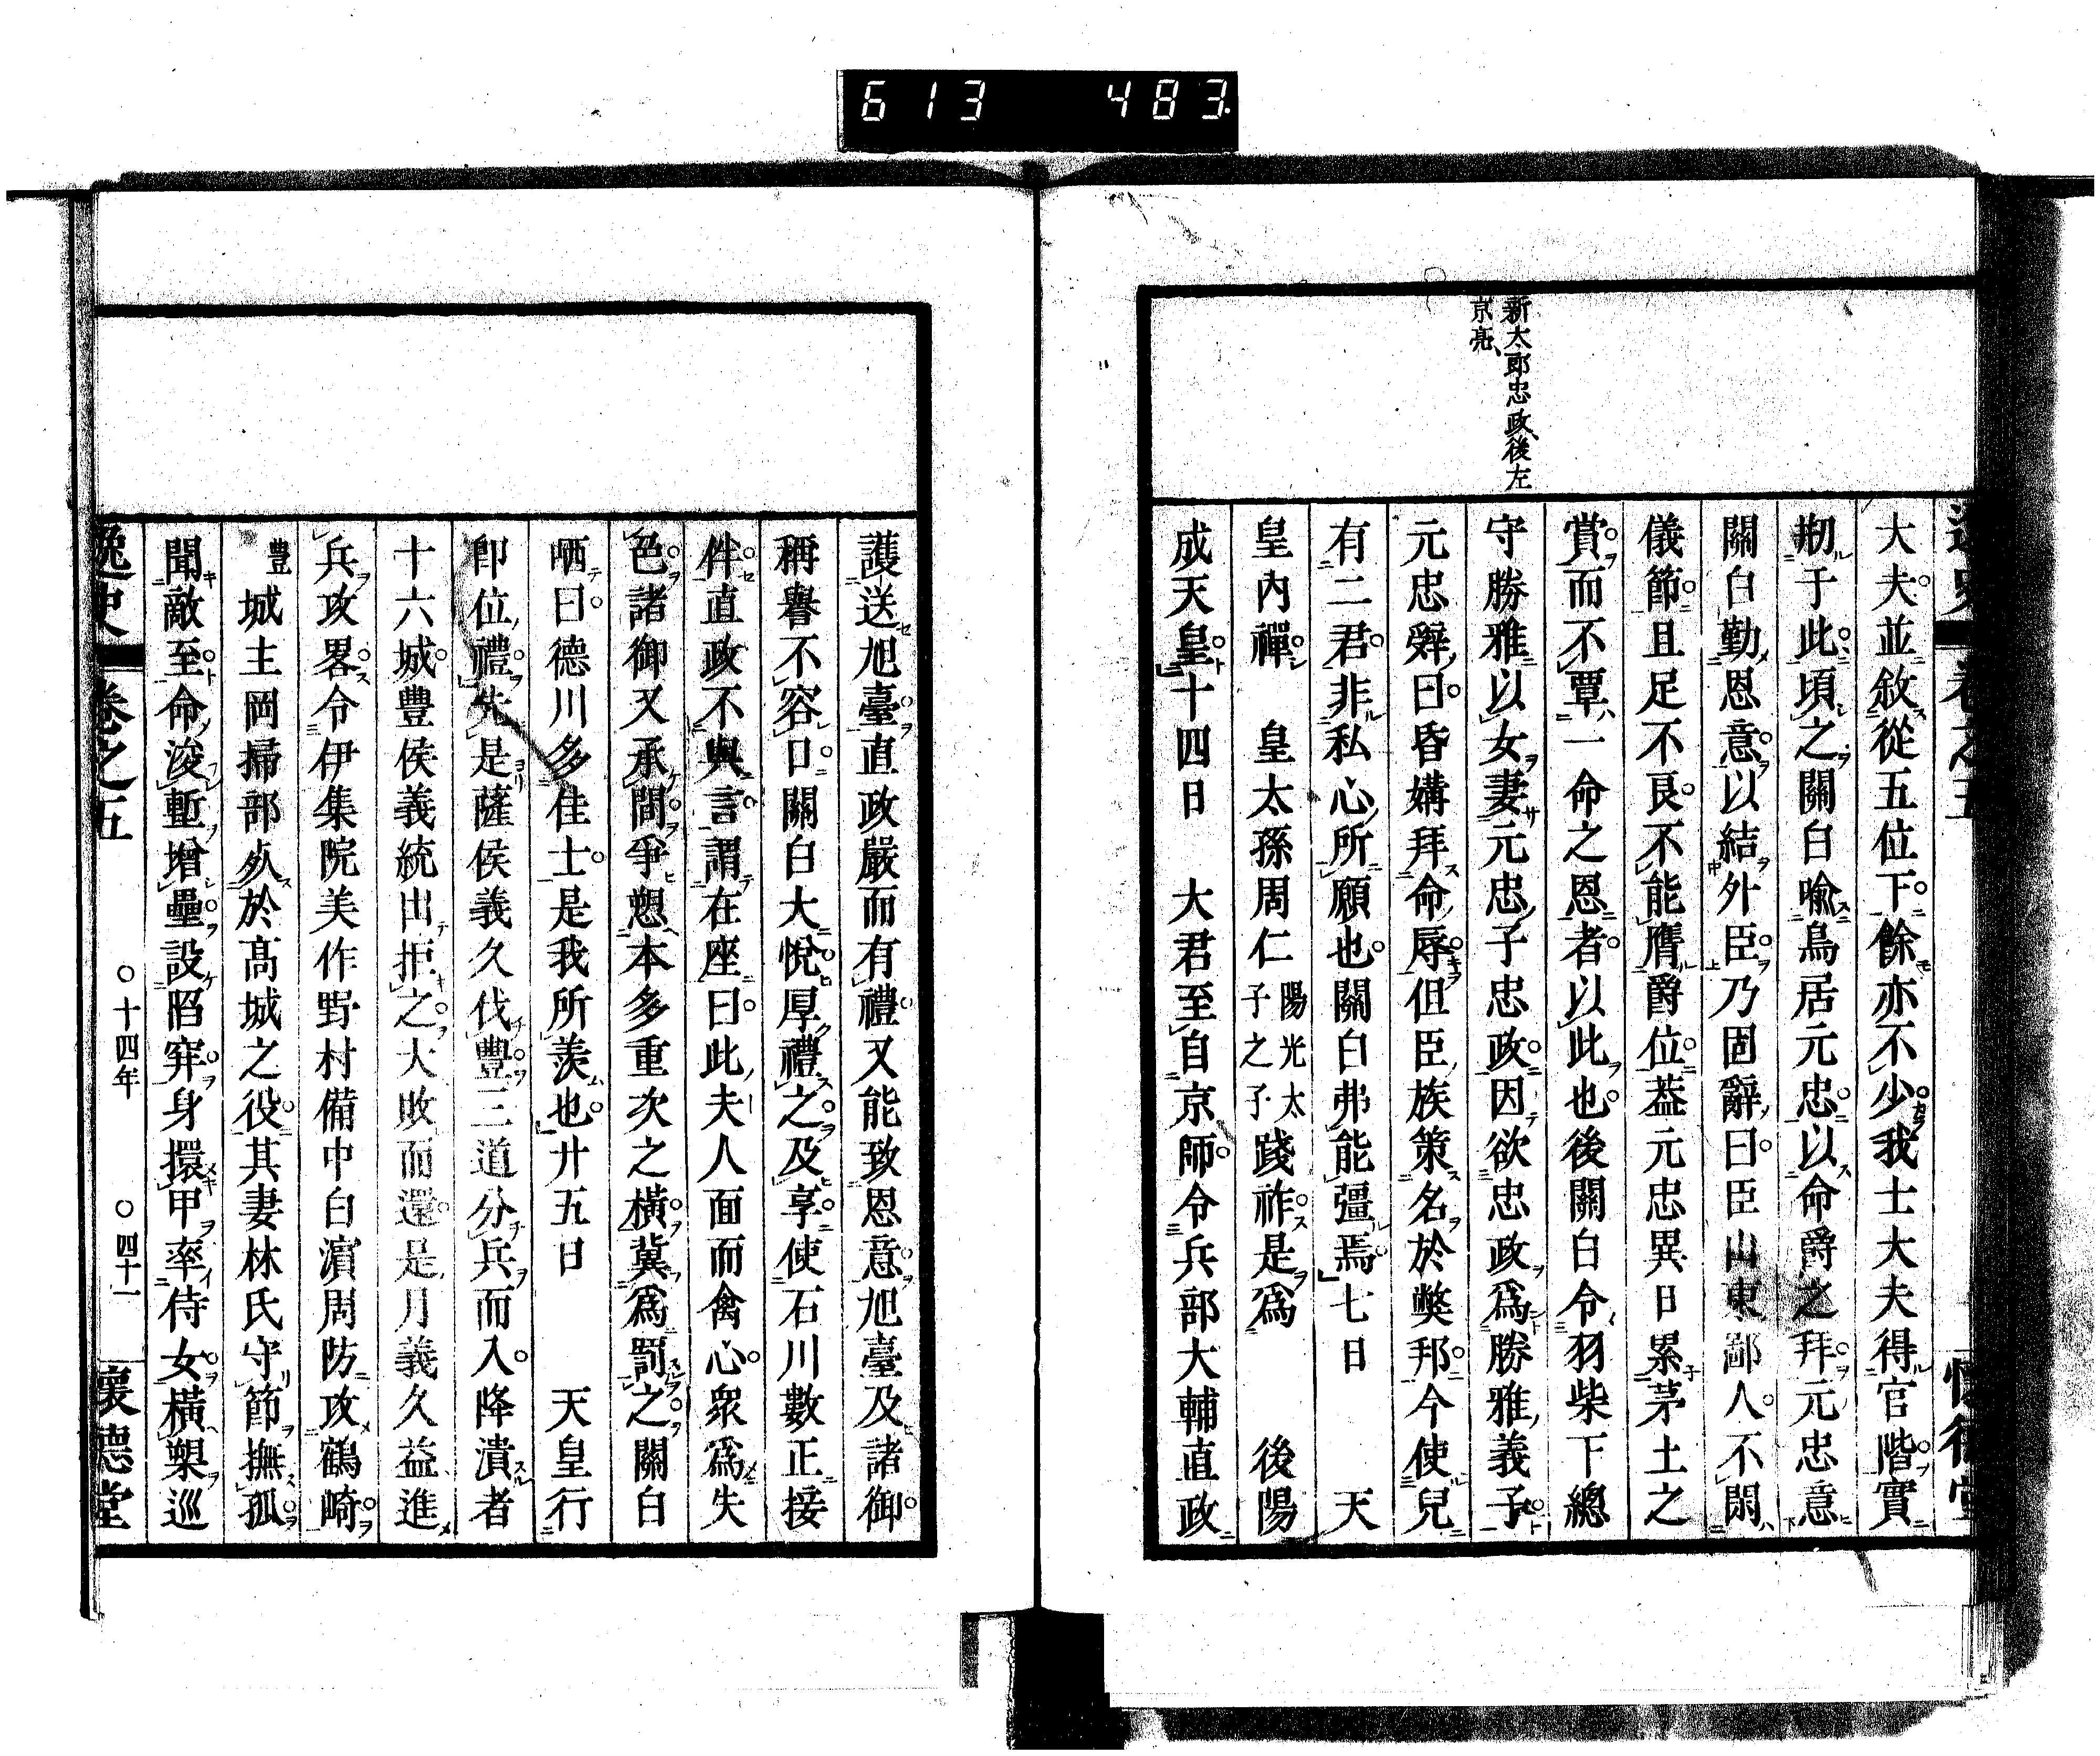 613 483
新太郎忠政後左
京亮
大夫並敘從五位下餘亦不少我士大夫得官階實
剏于此頃之關白喩鳥居元忠以命爵之拜元忠意
關白勤恩意以結外臣乃固辭曰臣山東鄙人不閑
儀節且足不良不能膺爵位葢元忠異日累茅土之
賞而不覃一命之恩者以此也後關白令羽柴下總
守勝雅以女妻元忠子忠政因欲忠政爲勝雅義子
元忠辤曰昏媾拜命辱但臣族策名於獘邦今使兒
有二君非私心所願也關白弗能彊焉七日 天
皇內禪 皇太孫周仁陽光太子之子踐祚是爲 後陽
成天皇十四日 大君至自京師令兵部大輔直政
護送旭臺直政嚴而有禮又能致恩意旭臺及諸御
稱譽不容口關白大悅厚禮之及享使石川數正接
伴直政不與言謂在座曰此夫人面而禽心衆爲失
色諸御又承間爭愬本多重次之橫冀爲罰之關白
哂曰德川多佳士是我所羨也廿五日 天皇行
卽位禮先是薩侯義久伐豐三道分兵而入降潰者
十六城豐侯義統出拒之大敗而還是月義久益進
兵攻畧令伊集院美作野村備中白濱周防攻鶴崎
豐城主岡掃部㱙於髙城之役其妻林氏守節撫孤
聞敵至命浚塹增壘設䧟穽身擐甲率侍女橫槊巡
逸史 卷之五 ○十四年 ○四十一 懷德堂